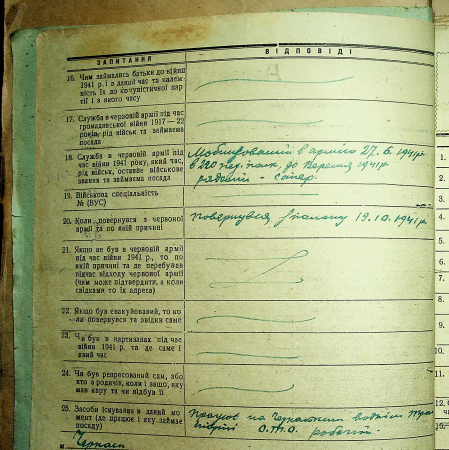 ЗАПИТАННЯ
ВІДПОВІДІ
16. Чим займались батьки до війни
1941 р. і в даний час та належ-
ність їх до комуністичної пар-
тії і з якого часу
17. Служба в червоній армії під час
громадянської війни 1917—22
років, рід військ та займаєма
посада
18. Служба в червоній армії під час
війни 1941 року, який час,
рід військ, останнє військове
звання та займаєма посада
Мобилізований в армію 27.6.1941р
в 220 до Вересня 1941р
рядовий - сапер.
19. Військова спеціальність
№ (ВУС)
20. Коли повернувся з червоної
армії та по якій причині
повернувся з полону 19.10.1941р
21. Якщо не був в червоній армії
під час війни 1941 р., то по
якій причині та де перебував
підчас відходу червоної армії
(чим може підтвердити, а коли
свідками то їх адреса)
22. Якщо був евакуйований, то ко-
ли повернувся та звідки саме
23. Чи був в партизанах під час
війни 1941 р. та де саме і
який час
24. Чи був репресований сам, або
хто з родичів, коли і защо, яку
мав кару та чи відбув її
25. Засоби існування в даний мо-
мент (де працює і яку займає
посаду)
Працює на Черкаськім воднім
О.Т.О. робочий
м. Черкаси
1.
2.
3.
4.
5.
6.
7.
8.
9.
10.
11.
12.
13.
14.
15.